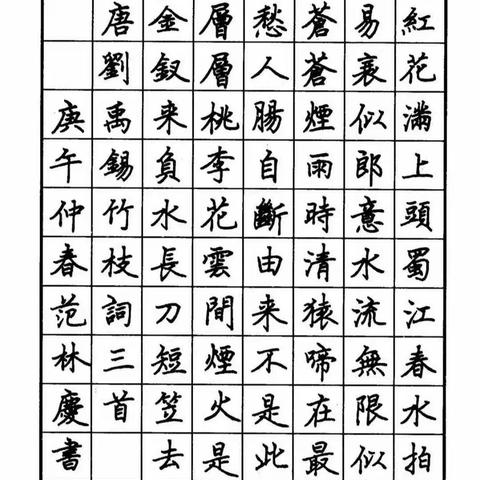 紅花滿上頭蜀江春水拍
易衰似郎意水流無限似
蒼蒼煙雨時清猿啼在最
愁人腸自斷由来不是此
層層桃李花雲間煙火是
金釵来負水長刀短笠去
唐劉禹錫竹枝詞三首
庚午仲春范林慶書